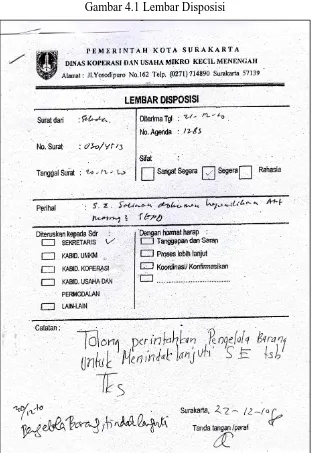 Gambar 4.1 Lembar Disposisi
PEMERINTAH KOTA SURAKARTA
DINAS KOPERASI DAN USAHA MIKRO KECIL MENENGAH
Alamat : Jl.Yosodipuro No.162 Telp. (0271) 714890 Surakarta 57139
LEMBAR DISPOSISI
Surat dari : Sekda
Diterima Tgl : 21-12-20
No. Agenda : 1285
No. Surat :
Sifat :
Tanggal Surat :
Sangat Segera
Segera
Rahasia
Perihal : S.E.
Diteruskan kepada Sdr :
Dengan hormat harap :
SEKRETARIS
Tanggapan dan Saran
KABID. UMKM
Proses lebih lanjut
KABID. KOPERASI
Koordinasi/ Konfirmasikan
KABID. USAHA DAN
PERMODALAN
LAIN-LAIN
Catatan :
Tolong perintahkan Pengelola Barang
Untuk Menindak lanjuti SE tsb
Tks
Pengelola Barang, tindak lanjuti
Surakarta, 22-12-
Tanda tangan /paraf